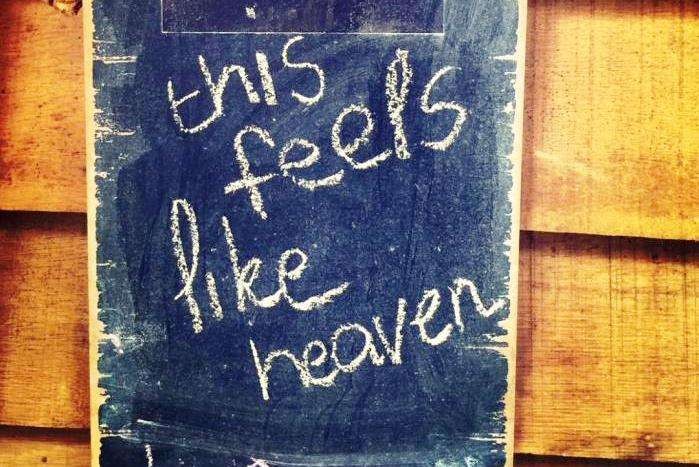 this
feels
like
heaven